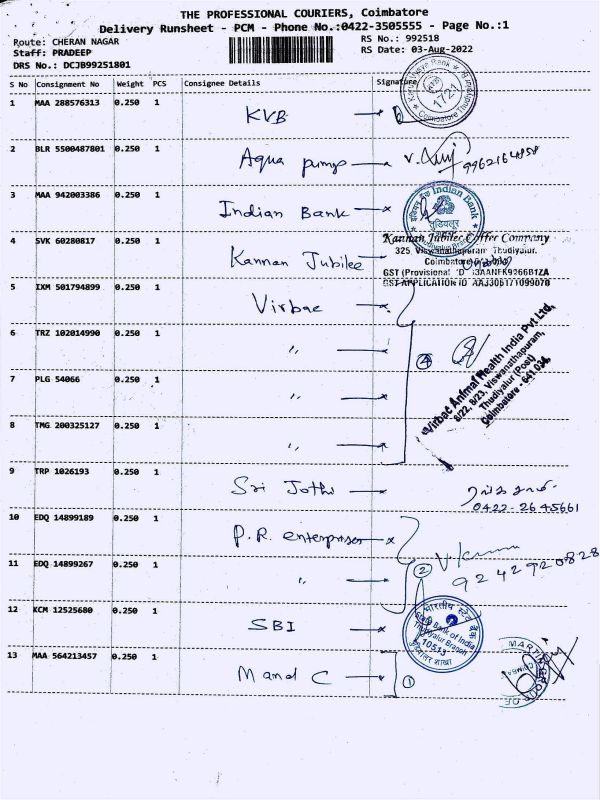 THE PROFESSIONAL COURIERS, Coimbatore
Delivery Runsheet - PCM - Phone No.:0422-3505555 - Page No.:1
Route: CHERAN NAGAR RS No.: 992518
Staff: PRADEEP RS Date: 03-Aug-2022
DRS No.: DCJB99251801
S No Consignment No Weight PCS Consignee Details Signature
1 MAA 288576313 0.250 1 KVB
1721
Coimbatore
2 BLR 5500487801 0.250 1 Aqua pumps 9962164858
3 MAA 942003386 0.250 1 Indian Bank
Indian Bank
4 SVK 60280817 0.250 1 Kannan Jubilee
Kannan Jubilee Coffee Company
325, Viswanathapuram Thudiyalur.
GST (Provisional
GST APPLICATION ID
5 IXM 501794899 0.250 1 Virbac
6 TRZ 102014990 0.250 1 〃 4
7 PLG 54066 0.250 1 〃
8 TMG 200325127 0.250 1 〃
Virbac Animal Health India Pvt Ltd,
8/22, 8/23, Viswanathapuram,
Thudiyalur (Post),
Coimbatore - 641 034.
9 TRP 1026193 0.250 1 Sri Jothi
0422-2645661
10 EDQ 14899189 0.250 1 P.R. enterprises
11 EDQ 14899267 0.250 1 〃 2 9242920828
12 KCM 12525680 0.250 1 SBI
भारतीय स्टेट बैंक
State Bank of India
Thudiyalur Branch
10513
13 MAA 564213457 0.250 1 Mand C 1